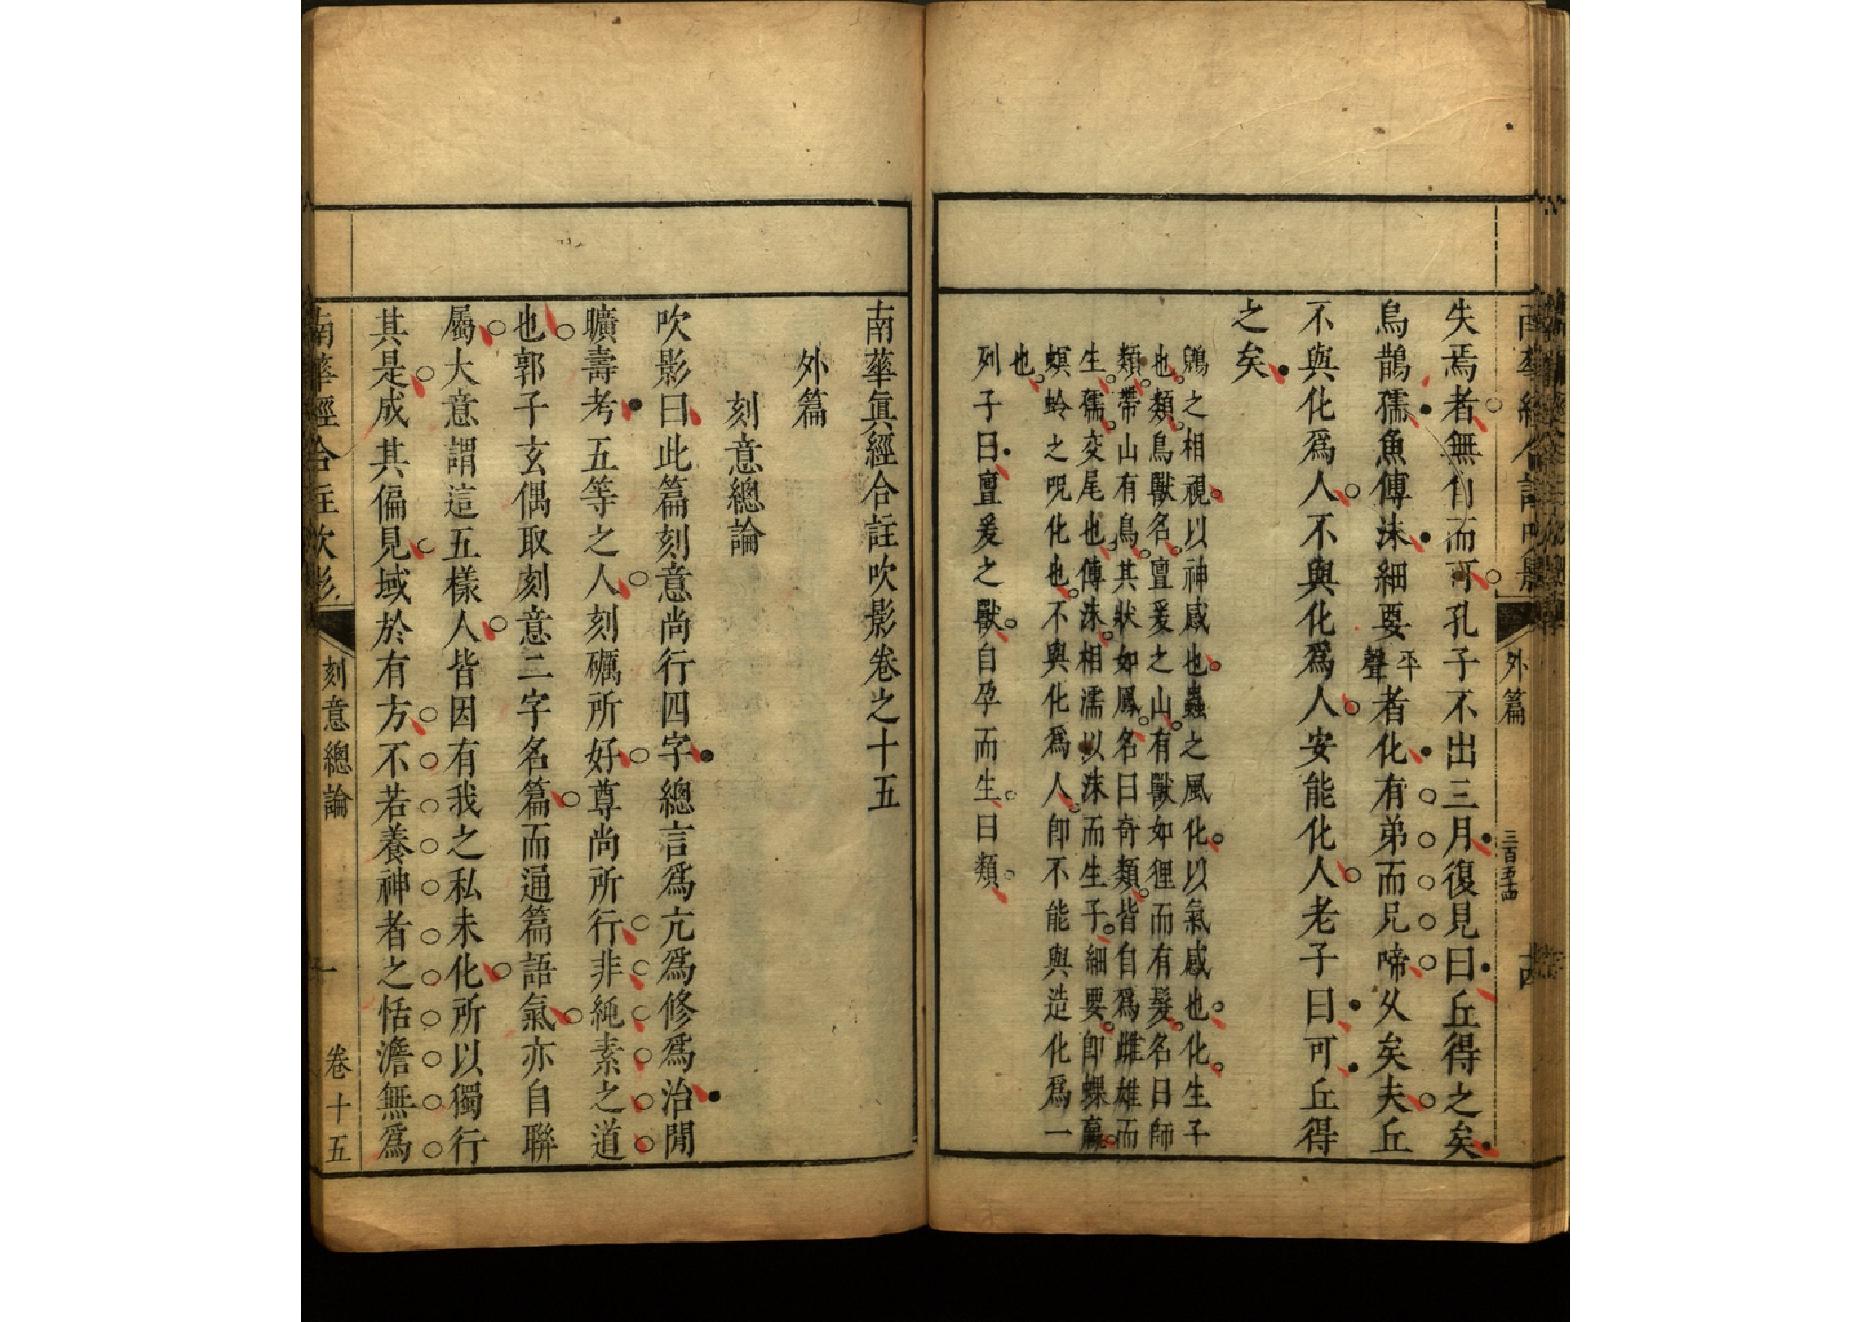 失焉者無自而可孔子不出三月復見曰丘得之矣
烏鵲孺魚傅沫細要平聲者化有弟而兄啼久矣夫丘
不與化爲人不與化爲人安能化人老子曰可丘得
之矣
鶂之相視以神感也蟲之風化以氣感也化生子
也類鳥獸名亶爰之山有獸如狸而有髮名曰師
類帶山有鳥其狀如鳳名曰奇類皆自爲雌雄而
生孺交尾也傅沫相濡以沫而生子細要卽蜾蠃
螟蛉之呪化也不與化爲人卽不能與造化爲一
也
列子曰亶爰之獸自孕而生曰類
外篇
三百五十四
南華眞經合註吹影卷之十五
外篇
刻意總論
吹影曰此篇刻意尚行四字總言爲亢爲修爲治閒
曠壽考五等之人刻礪所好尊尚所行非純素之道
也郭子玄偶取刻意二字名篇而通篇語氣亦自聯
屬大意謂這五樣人皆因有我之私未化所以獨行
其是成其偏見域於有方不若養神者之恬澹無爲
南華經合註吹影
刻意總論
一
卷十五